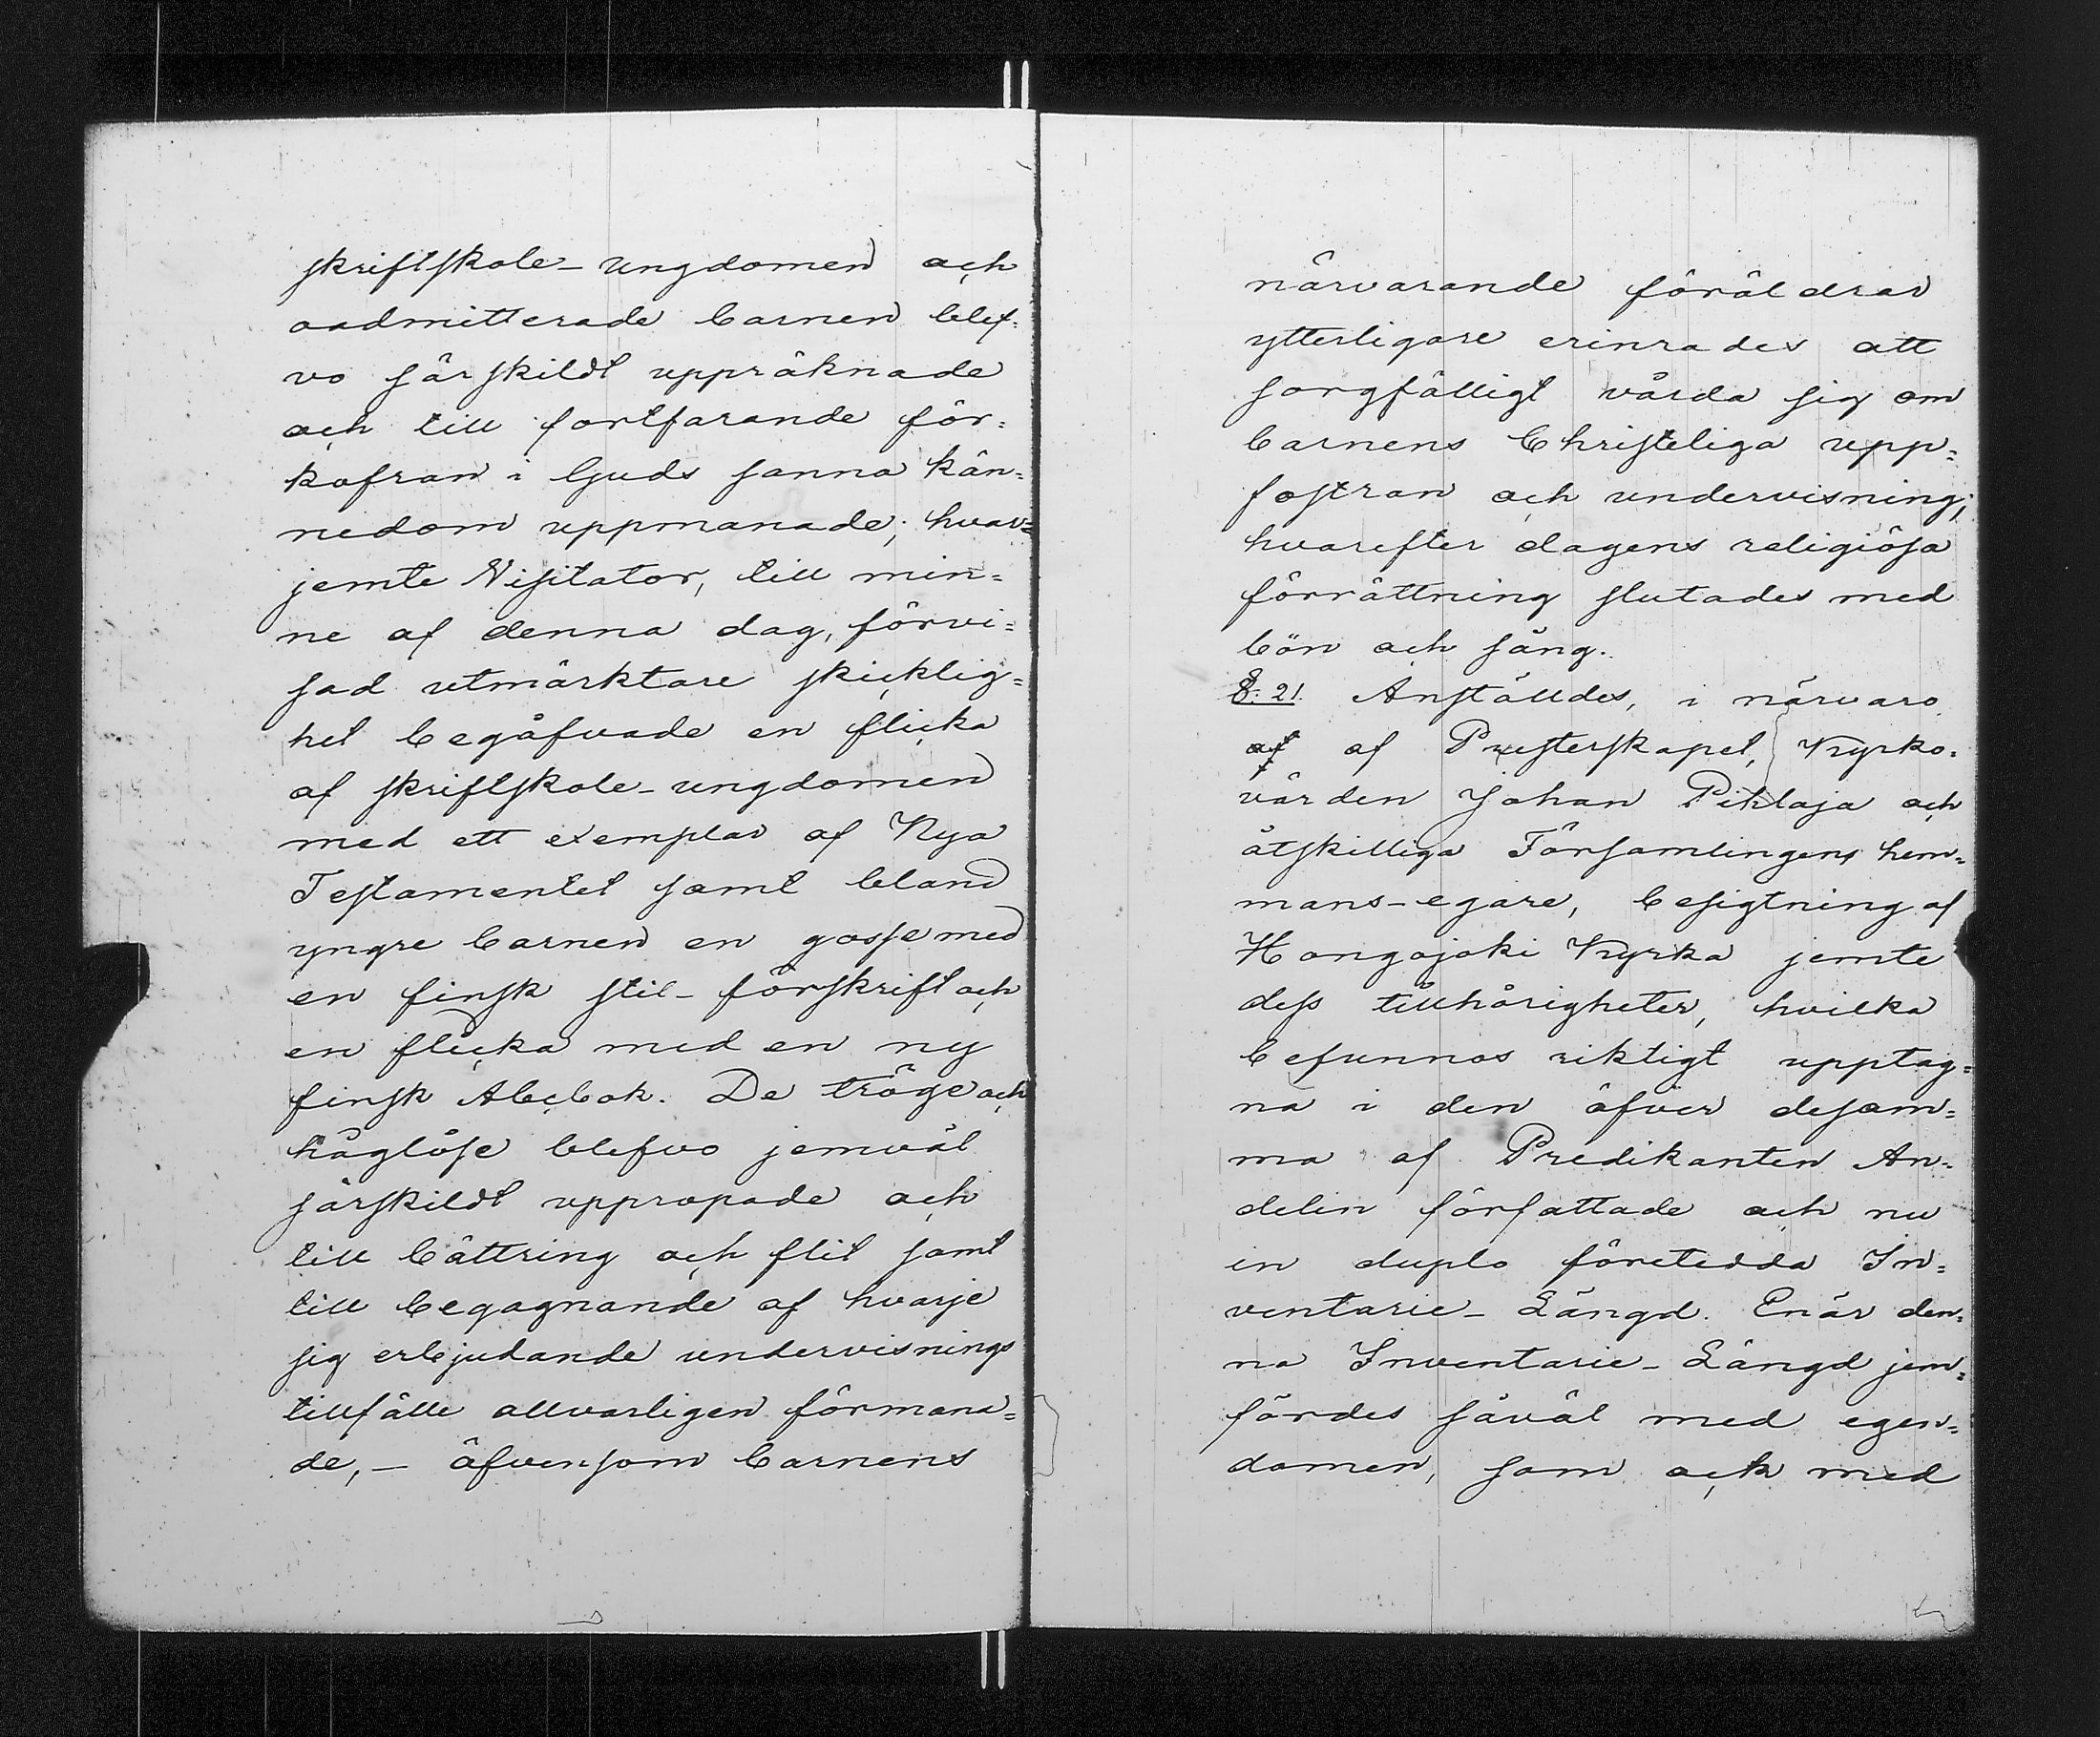 skriftskole-ungdomen och
oadmitterade barnen blef=
vo särskildt uppräknade
och till fortfarande för=
kofran i Guds sanna kän=
nedom uppmanade; hvar=
jemte Visitator, till min=
ne af denna dag, förvi=
sad utmärktare skicklig=
het begåfvade en flicka
af skriftskole-ungdomen
med ett exemplar af Nya
Testamentet samt bland
yngre barnen en gosse med
en finsk stil-förskrift och
en flicka med en ny
finsk Abcbok. De tröge och
håglöse blefvo jemväl
särskildt uppropade och
till bättring och flit samt
till begagnande af hvarje
sig erbjudande undervisnings
tillfälle allvarligen förmana=
de, - äfvensom barnens
närvarande föräldrar
ytterligare erinrades att
sorgfälligt vårda sig om
barnens Christeliga upp=
fostran och undervisning;
hvarefter dagens religiösa
förrättning slutades med
bön och sång.
§. 21. Anställdes, i närvaro
af af Presterskapet, Kyrko=
värden Johan Pihlaja och
åtskilliga Församlingens hem=
mans-egare, besigtning af
Hongojoki Kyrka jemte
dess tillhörigheter, hvilka
befunnos riktigt upptag=
na i den öfver desam=
ma af Predikanten An=
delin författade och nu
in duplo företedda In=
ventarie-Längd. Enär den=
na Inventarie-Längd jem=
fördes såväl med egen=
domen, som ock med